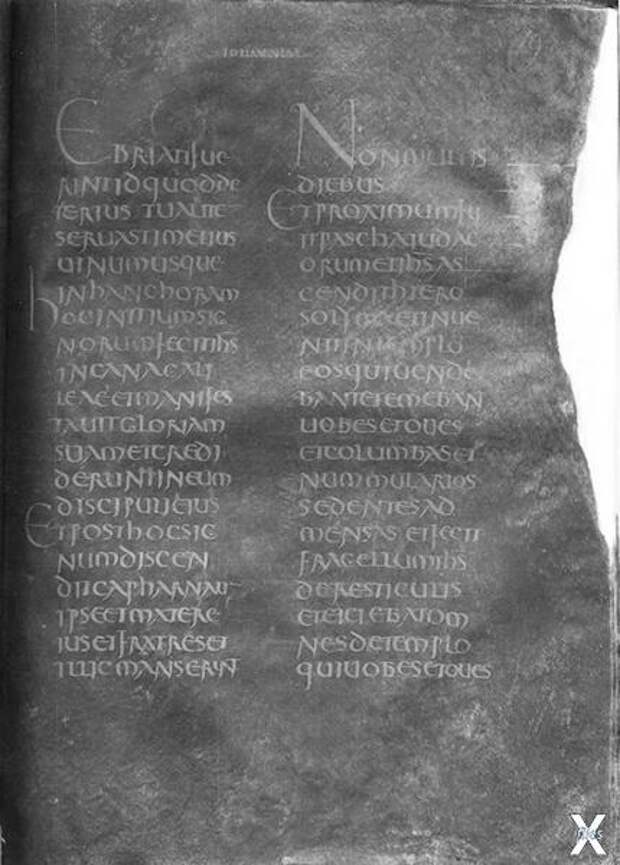 EBRIATI FUE
RINT ID QUOD DE
TERIUS TU AUTE
SERUASTI MELIUS
UINUM USQUE
IN HANC HORAM
HOC INITIUM SIG
NORUM FECIT IHS
IN CANA GALI
LEAE ET MANIFES
TAUIT GLORIAM
SUAM ET CREDI
DERUNT IN EUM
DISCIPULI EIUS
ET POST HOC SIC
NUM DISCEN
DIT CAPHARNAU
IPSE ET MATER E
IUS ET FRATRES ET
ILLIC MANSERUNT
NON MULTIS
DIEBUS
ET PROXIMUM FU
IT PASCHA IUDAE
ORUM ET IHS AS
CENDIT HIERO
SOLYMA ET INUE
NIT IN TEMPLO
EOS QUI UENDE
BANT ET EMEBAN
UOBES ET OUES
ET COLUMBAS ET
NUMMULARIOS
SEDENTES AD
MENSAS ET FECIT
FRAGELLUM IHS
DE RESTICULIS
ET EICIEBAT OM
NES DE TEMPLO
QUI UOBES ET OUES